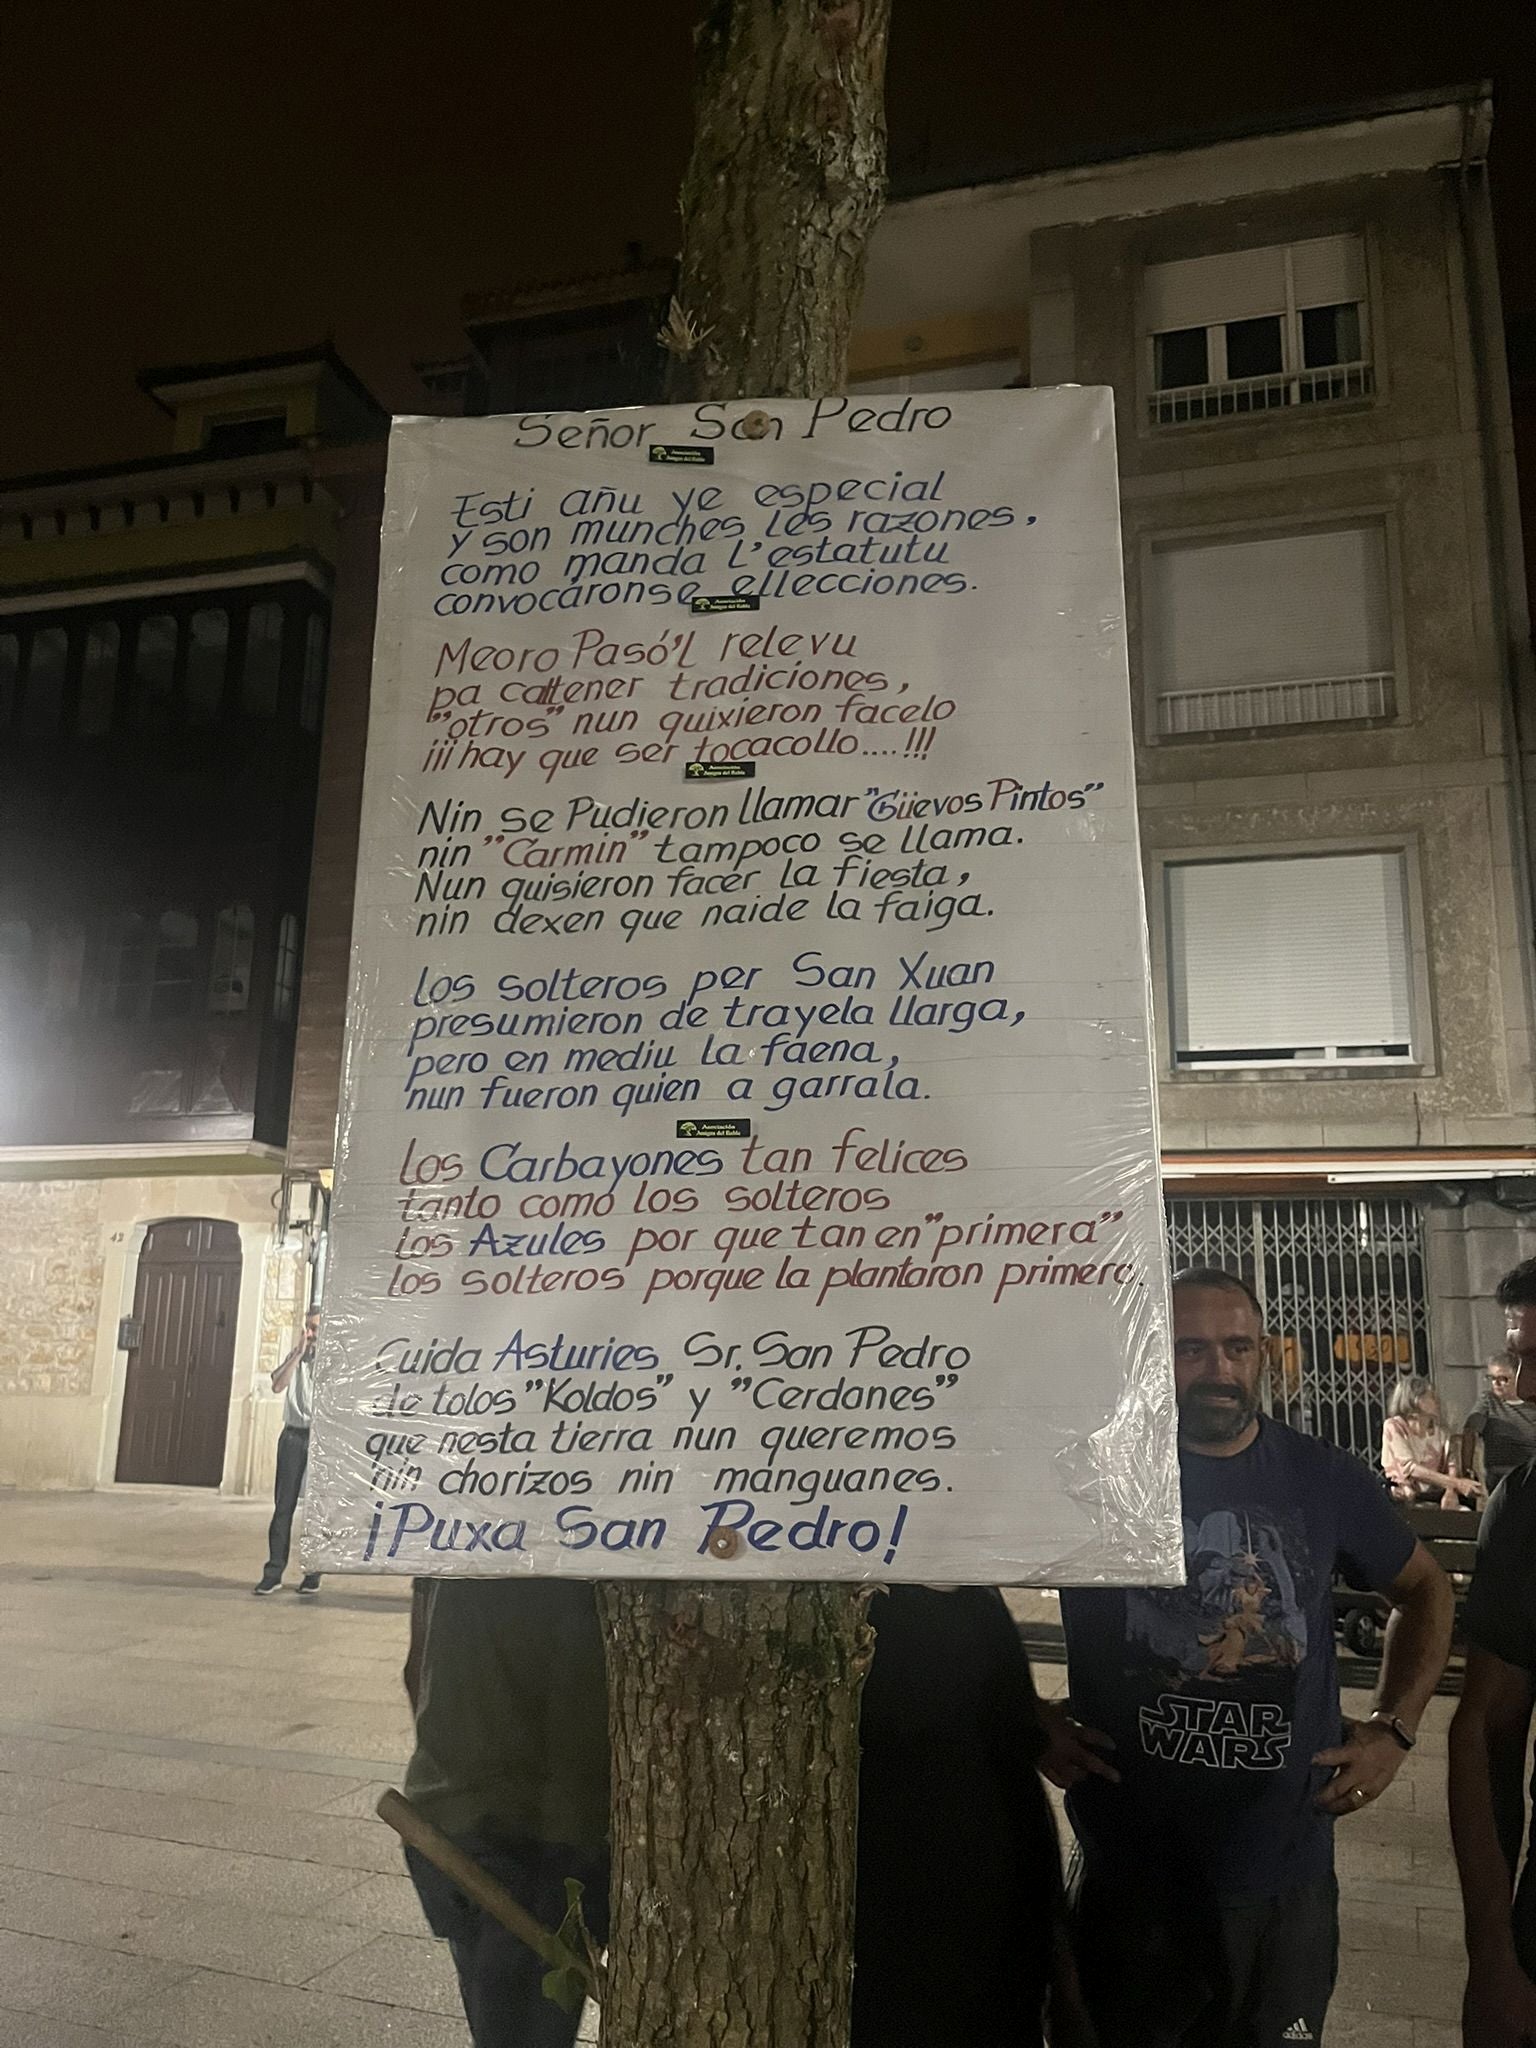 Señor San Pedro
Asociación
Amigos del Roble
Esti añu ye especial
y son munches les razones,
como manda l'estatutu
convocáronse ellecciones.
Asociación
Amigos del Roble
Meoro Pasó'l relevu
pa caltener tradiciones,
"otros" nun quixieron facelo
¡¡¡hay que ser tocacollo....!!!
Asociación
Amigos del Roble
Nin se Pudieron llamar "Güevos Pintos"
nin "Carmin" tampoco se llama.
Nun quisieron facer la fiesta,
nin dexen que naide la faiga.
Los solteros per San Xuan
presumieron de trayela llarga,
pero en mediu la faena,
nun fueron quien a garrala.
Asociación
Amigos del Roble
Los Carbayones tan felices
tanto como los solteros
Los Azules por que tan en "primera"
los solteros porque la plantaron primero.
Cuida Asturies Sr. San Pedro
de tolos "Koldos" y "Cerdanes"
que nesta tierra nun queremos
nin chorizos nin manguanes.
¡Puxa San Pedro!
42
STAR
WARS
adidas